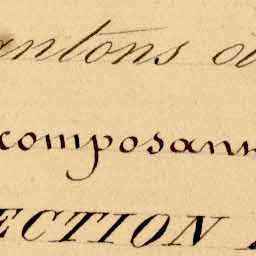 antons o
composan
ECTION